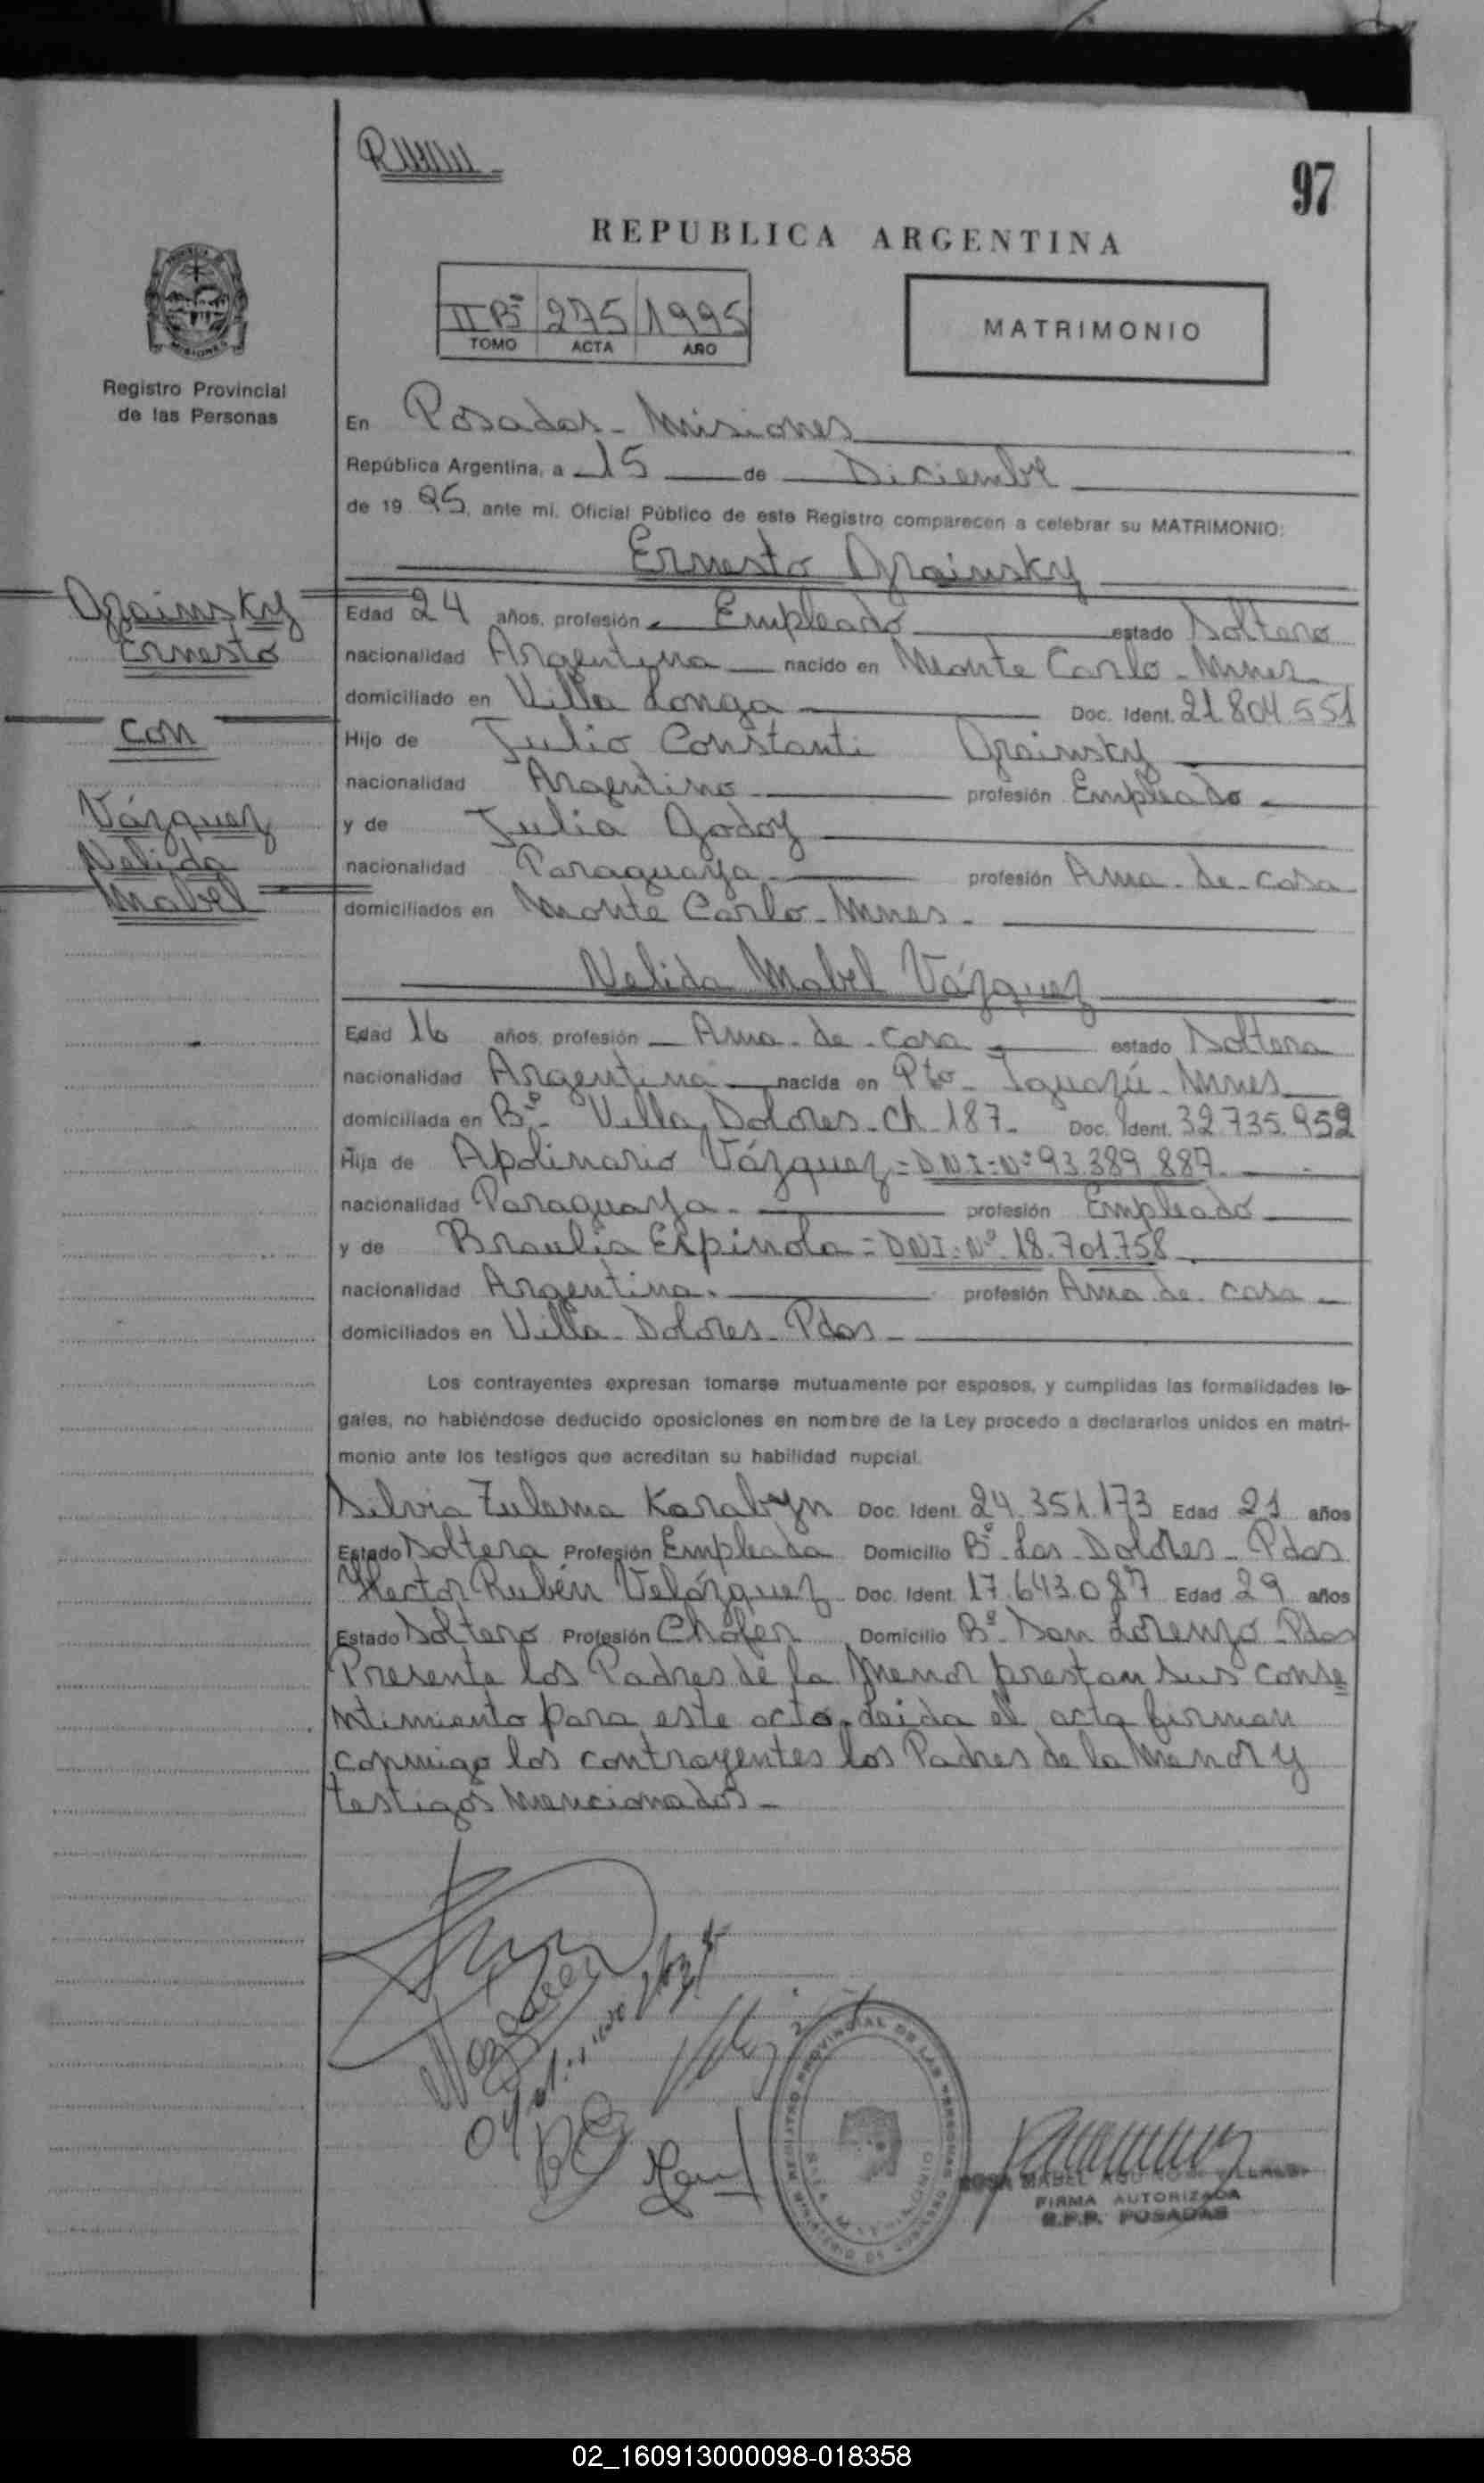 97
REPUBLICA ARGENTINA
IIBis 275 1995
TOMO ACTA AÑO
MATRIMONIO
Registro Provincial
de las Personas
En Posadas - Misiones
República Argentina, a 15 de Diciembre
de 19 95, ante mí, Oficial Público de este Registro comparecen a celebrar su MATRIMONIO:
Ernesto
Ernesto
con
Vázquez
Nelida
Mabel
Edad 24 años, profesión Empleado estado Soltero
nacionalidad Argentina nacido en Monte Carlo - Mnes
domiciliado en Villa Longa Doc. Ident. 21.804.551
Hijo de Julio Constanti
nacionalidad Argentino profesión Empleado
y de Julia Godoy
nacionalidad Paraguaya profesión Ama-de-casa
domiciliados en Monte Carlo - Mnes -
Nelida Mabel Vázquez
Edad 16 años, profesión Ama-de-casa estado Soltera
nacionalidad Argentina nacida en Pto - Iguazú - Mnes
domiciliada en Bº - Villa Dolores - Ch - 187 - Doc. Ident. 32.735.959
Hija de Apolinario Vázquez = DNI = Nº 93.389.887
nacionalidad Paraguaya - profesión Empleado
y de Braulia Espinola = DNI = Nº 18.701.758
nacionalidad Argentina profesión Ama de casa
domiciliados en Villa - Dolores - Pdas -
Los contrayentes expresan tomarse mutuamente por esposos, y cumplidas las formalidades le-
gales, no habiéndose deducido oposiciones en nombre de la Ley procedo a declararlos unidos en matri-
monio ante los testigos que acreditan su habilidad nupcial.
Silvia Zulema Doc. Ident. 24.351.173 Edad 21 años
Estado Soltera Profesión Empleada Domicilio Bº - Las - Dolores - Pdas
Hector Rubén Velázquez Doc. Ident. 17.643.087 Edad 29 años
Estado Soltero Profesión Chófer Domicilio Bº - San Lorenzo - Pdas
Presente los Padres de la Menor prestan sus conse
ntimiento para este acto. Leida el acta firman
conmigo los contrayentes los Padres de la Menor y
testigos mencionados -
REGISTRO PROVINCIAL DE LAS PERSONAS
MINISTERIO DE GOBIERNO
FIRMA AUTORIZADA
R.P.P. POSADAS
02_160913000098-018358